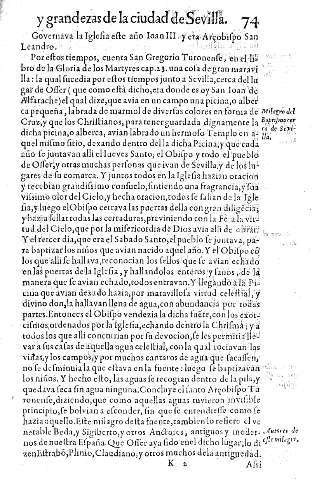 y grandezas de la ciudad de Sevilla. 74
Governava la Iglesia este año Ioan III. y era Arçobispo San
Leandro.
Por estos tiempos, cuenta San Gregorio Turonense, en el li
bro de la Gloria de los Martyres cap. 23. una cosa de gran maravi
lla: la qual sucedia por estos tiempos junto a Sevilla, cerca del lu
gar de Osser ( que como està dicho, era donde es oy San Ioan de
Alfarache) el qual dize, que avia en un campo una picina, o alber
ca pequeña, labrada de marmol de diversos colores en forma de
Cruz, y que los Christianos, para tener guardada dignamente la
dicha picina, o alberca, avian labrado un hermoso Templo en a-
quel mismo sitio, dexando dentro del la dicha Picina; y que cada
año se juntavan alli el Iueves Santo, el Obispo y todo el pueblo
de Osser, y otras muchas personas que ivan de Sevilla, y de los lu-
gares de su comarca. Y juntos todos en la Iglesia hazian oracion
y recebian grandissimo consuelo, sintiendo una fragrancia, y sua
vissimo olor del Cielo, y hecha oracion, todos se salian de la Igle
sia, y luego el Obispo cerrava las puertas della con gran diligécia,
y hazia sellar todas las cerraduras, previniendo con la Fè a la vir-
tud del Cielo, que por la misericordia de Dios avia alli de obrar.
Y el tercer dia, que era el Sabado Santo, el pueblo se juntava, pa-
ra baptizar los niños que avian nacido aquel año. Y el Obispo có
los que alli se hallava, reconocian los sellos que se avian echado
en las puertas de la Iglesia, y hallandolos enteros y sanos, de la
manera que se avian echado, todos entravan. Y llegando a la Pi
cina que avian dexado vazia, por maravillosa virtud celestial, y
divino don, la hallavan llena de agua, con abundancia por todas
partes. Entonces el Obispo bendezia la dicha fuéte, con los exor-
cismos, ordenados por la Iglesia, echando dentro la Chrisma; y a
todos los que alli concurrian por su devocion, se les permitia lle-
var a sus casas de aquella agua celestial, con la qual rociavan las
viñas, y los campos, y por muchos cantaros de agua que sacassen,
no se desminuia la que estava en la fuente: luego se baptizavan
los niños. Y hecho esto, las aguas se recogian dentro de la pila, y
quedava seca sin agua ninguna. Concluye el santo Arçobispo Tu
ronense, diziendo, que como aquellas aguas tuvieron invisible
principio, se bolvian a esconder, sin que se entendiesse como se
hazia aquello. Este milagro desta fuente, tambien lo refiere el ve
nerable Beda, y Sigiberto, y otros Auctores, antiguos y moder-
nos de nuestra España. Que Osser aya sido en el dicho lugar, lo di
zen Estrabõ, Plinio, Claudiano, y otros muchos de la antiguedad.
K 2 Assi
Milagro del
Baptisterio
cerca de Sevi-
lla.
Autores de
este milagro.